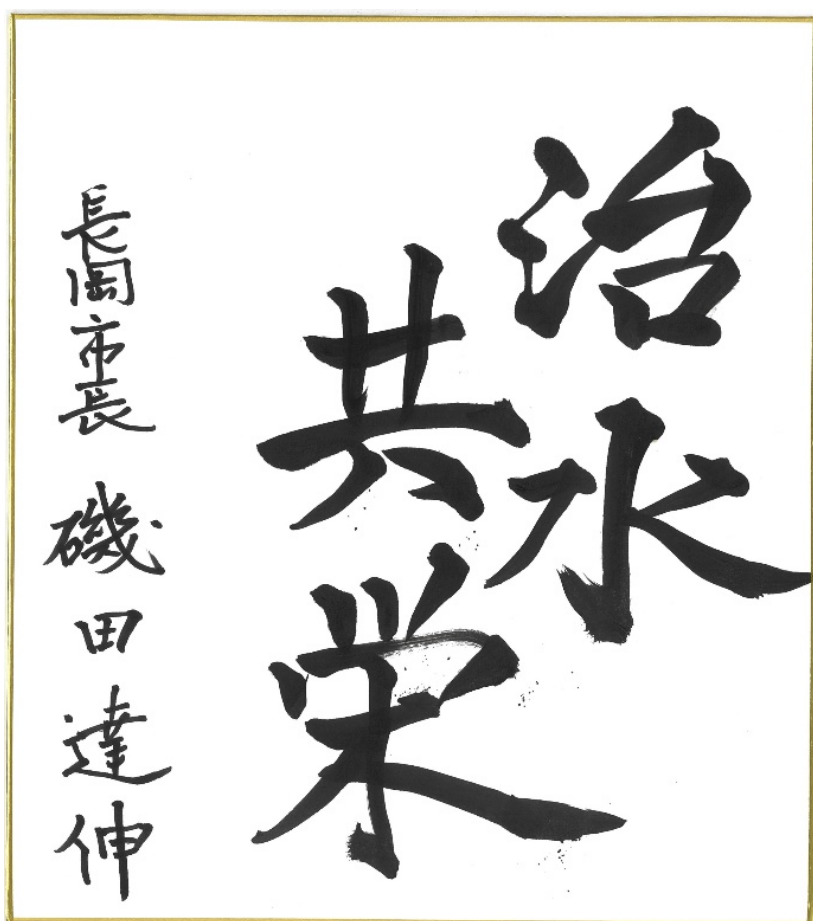 治水
共栄
長岡市長 磯田達伸